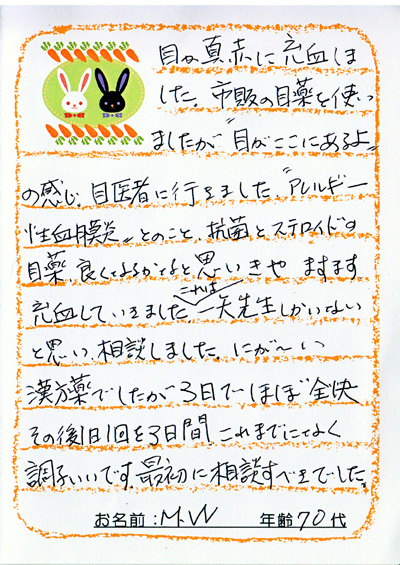 目が真赤に充血しま
した。市販の目薬を使い
ましたが〝目がここにあるよ〟
の感じ、目医者に行きました。〝アレルギー
性血膜炎〟とのこと、抗菌とステロイドの
目薬、良くなるかなと思いきや ますます
充血していきました。これは一矢先生しかいない
と思い、相談しました。にが～い
漢方薬でしたが3日でほぼ全快
その後1日1回を3日間、これまでになく
調子いいです。最初に相談すべきでした。
お名前：M.W 年齢70代